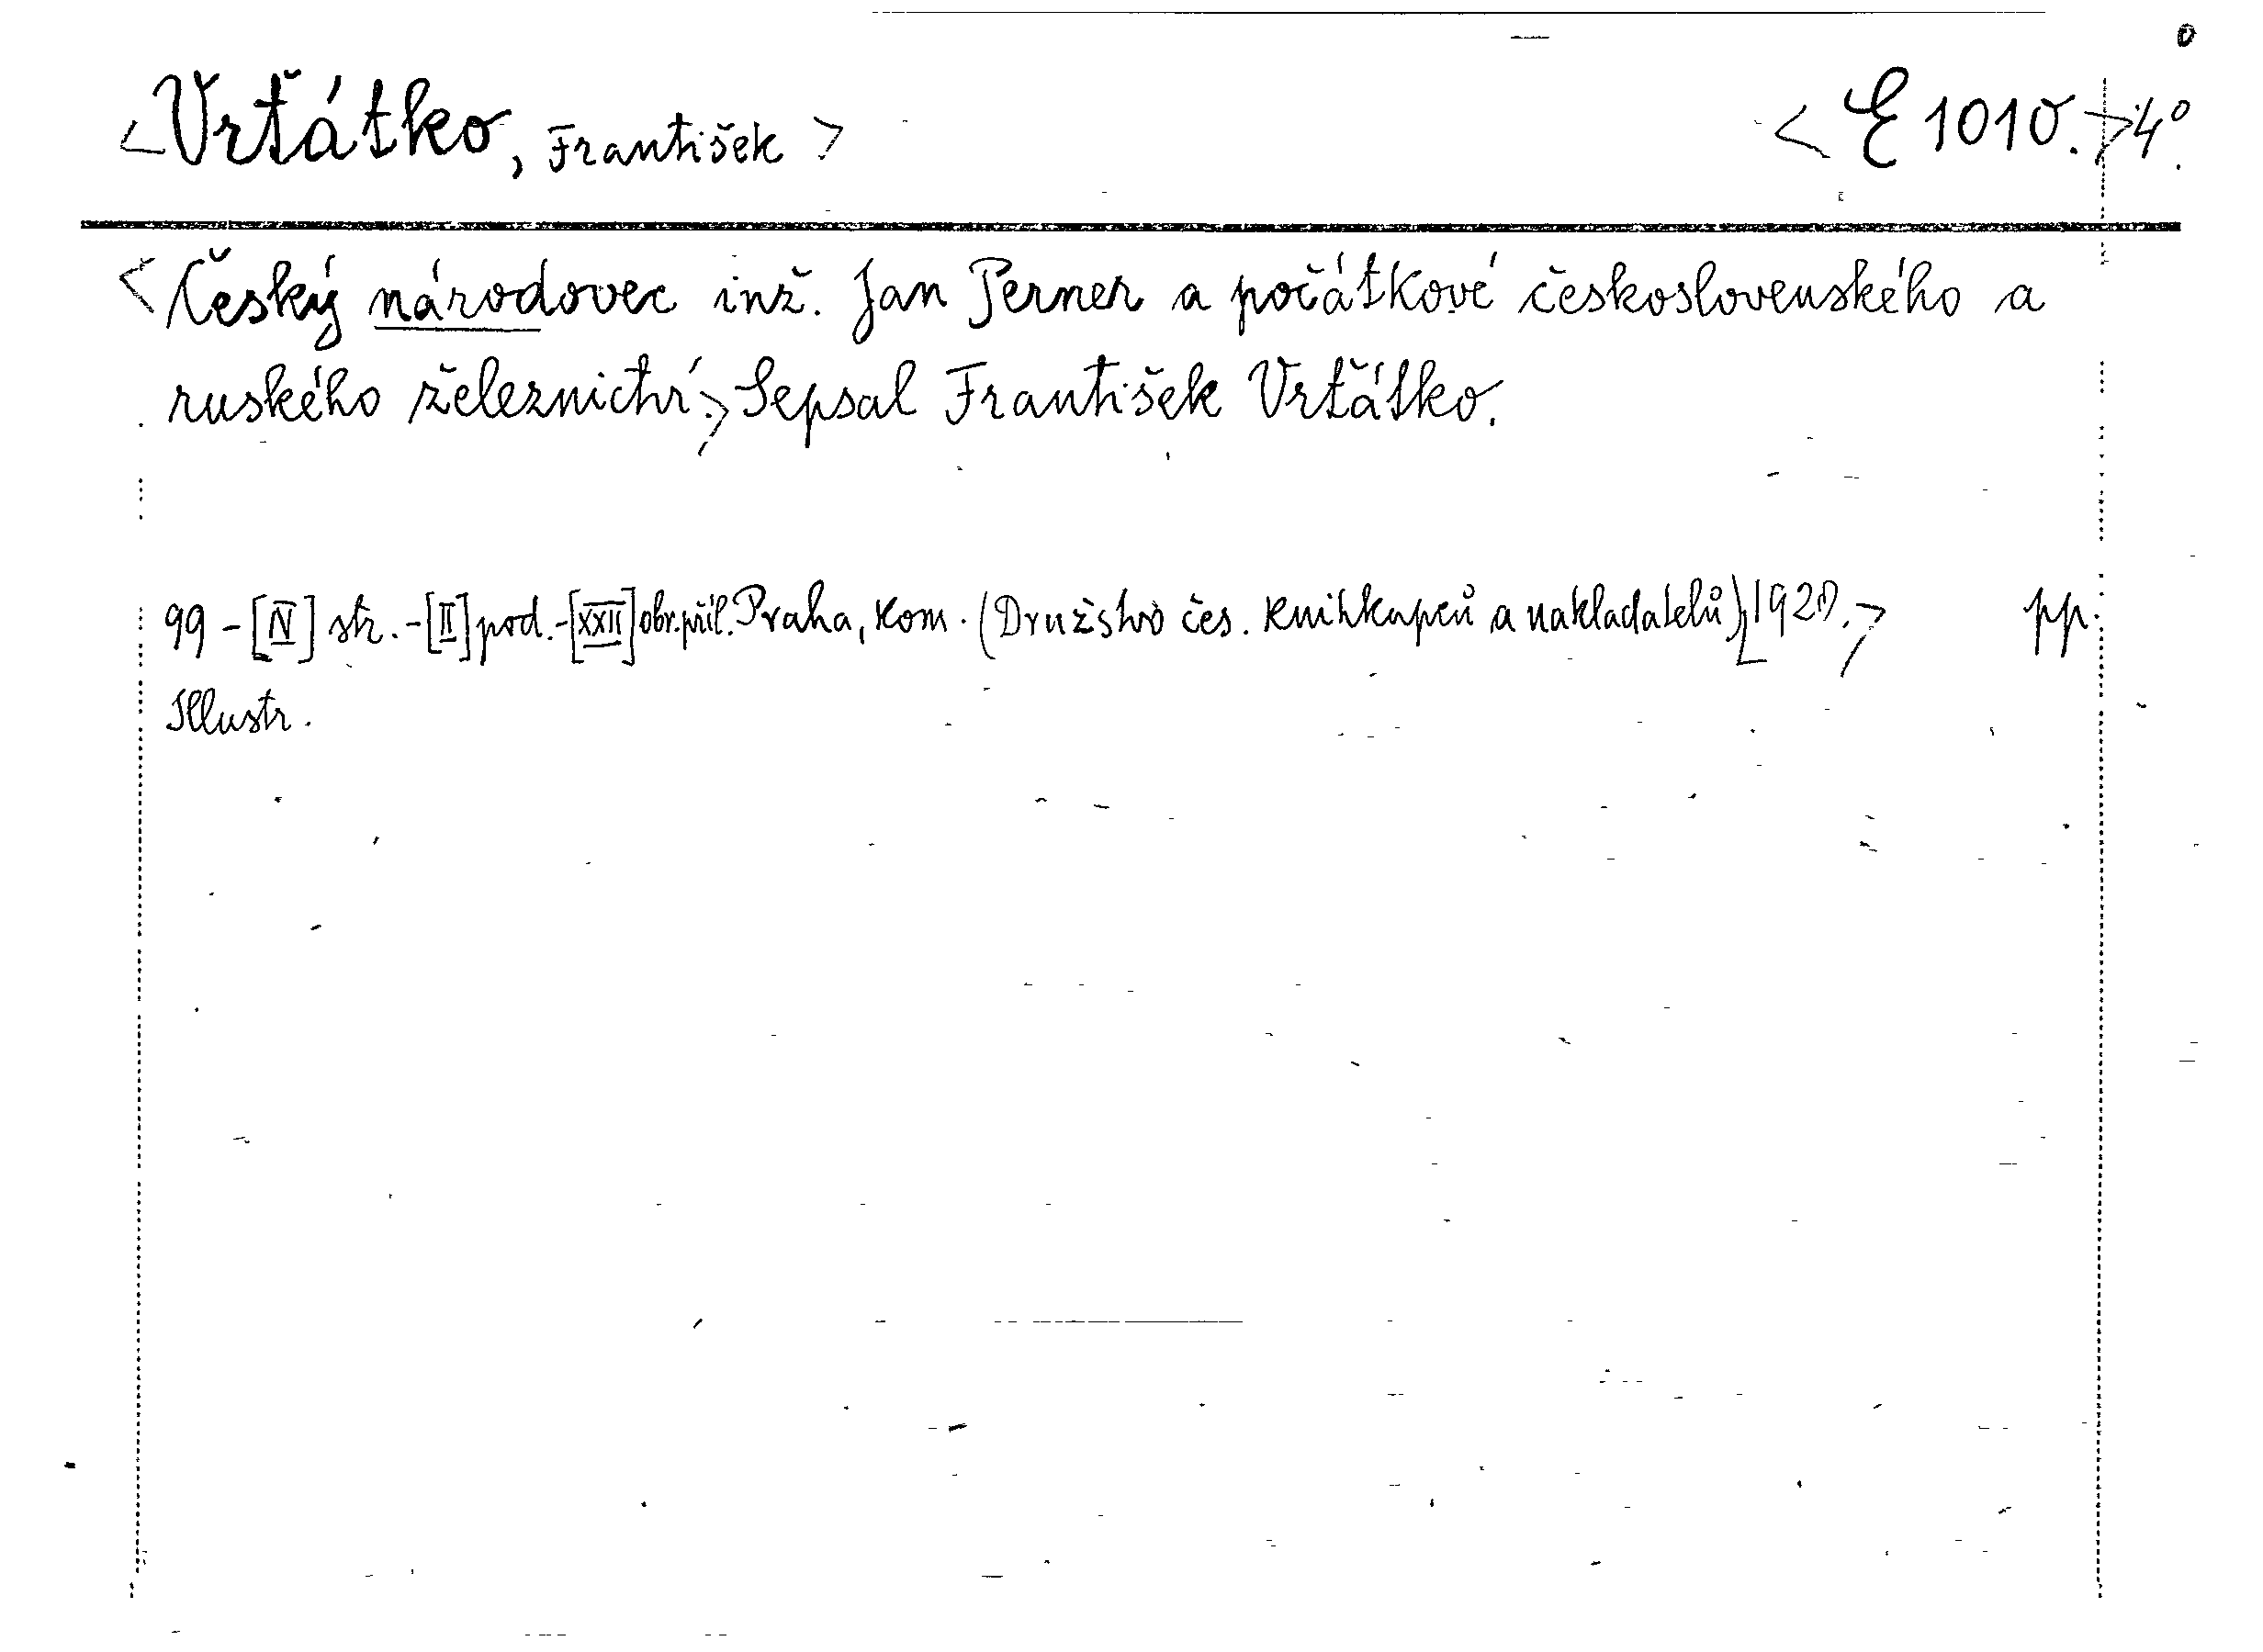 <Vrťátko, František> <E 1010.> 4°.
<Český národovec inž. Jan Perner a počátkové československého a
ruského železnictví.> Sepsal František Vrťátko.
99-[IV] str.-[II] pod.-[XXII] obr. příl. Praha, Kom. (Družstvo čes. knihkupců a nakladatelů) <1920.> pp.
Illustr.